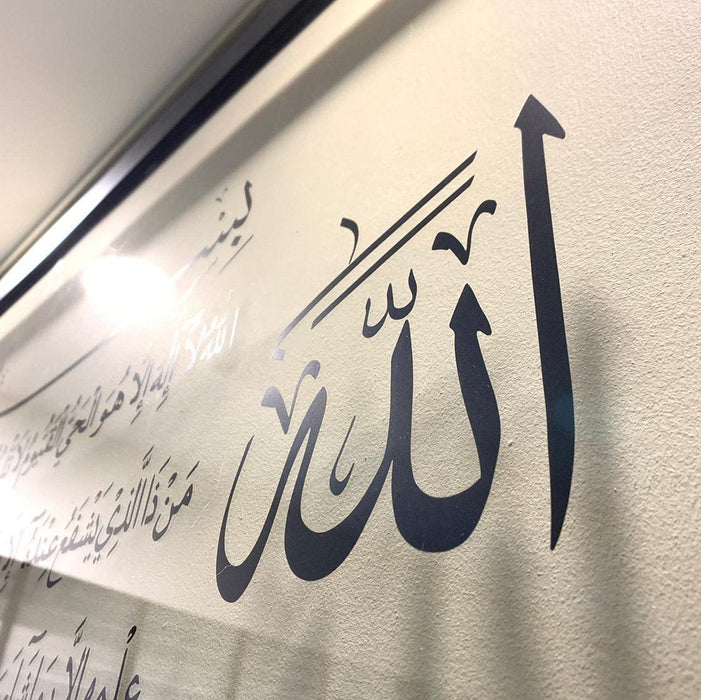 الله
بِسْ
اللهُ لَا إِلَهَ إِلَّا هُوَ الْحَيُّ الْقَيُّومُ لَا
مَنْ ذَا الَّذِيْ يَشْفَعُ عِنْدَهُ إِلَّا
عِلْمِهِ إِلَّا بِمَا شَاءَ